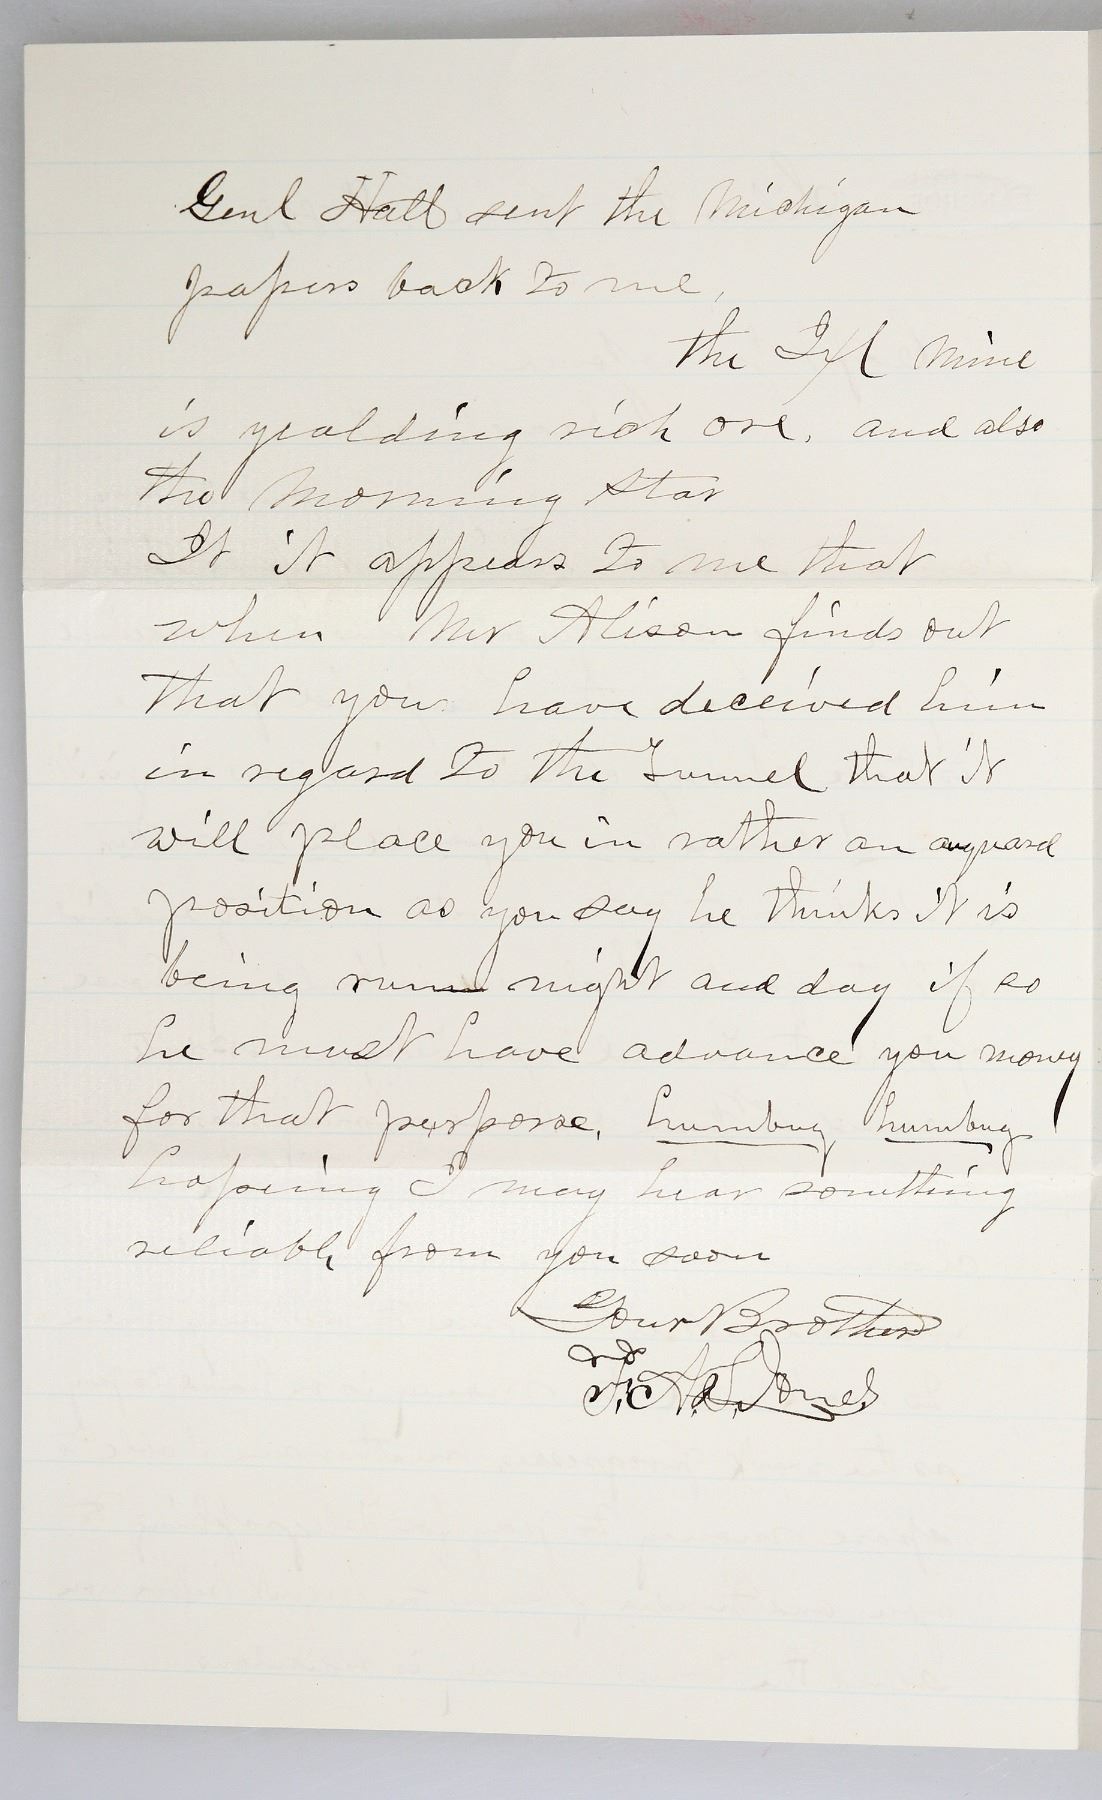 Genl Hall sent the Michigan
papers back to me,
the Ixl Mine
is yealding rich ore, and also
the Morning Star
It it appears to me that
when Mr Alison finds out
that you have deceived him
in regard to the Tunnel that it
will place you in rather an auquard
position as you say he thinks it is
being run night and day if so
he must have advance you money
for that purporse, humbug humbug
hopeing I may hear something
reliable from you soon
Your Brother
Jones